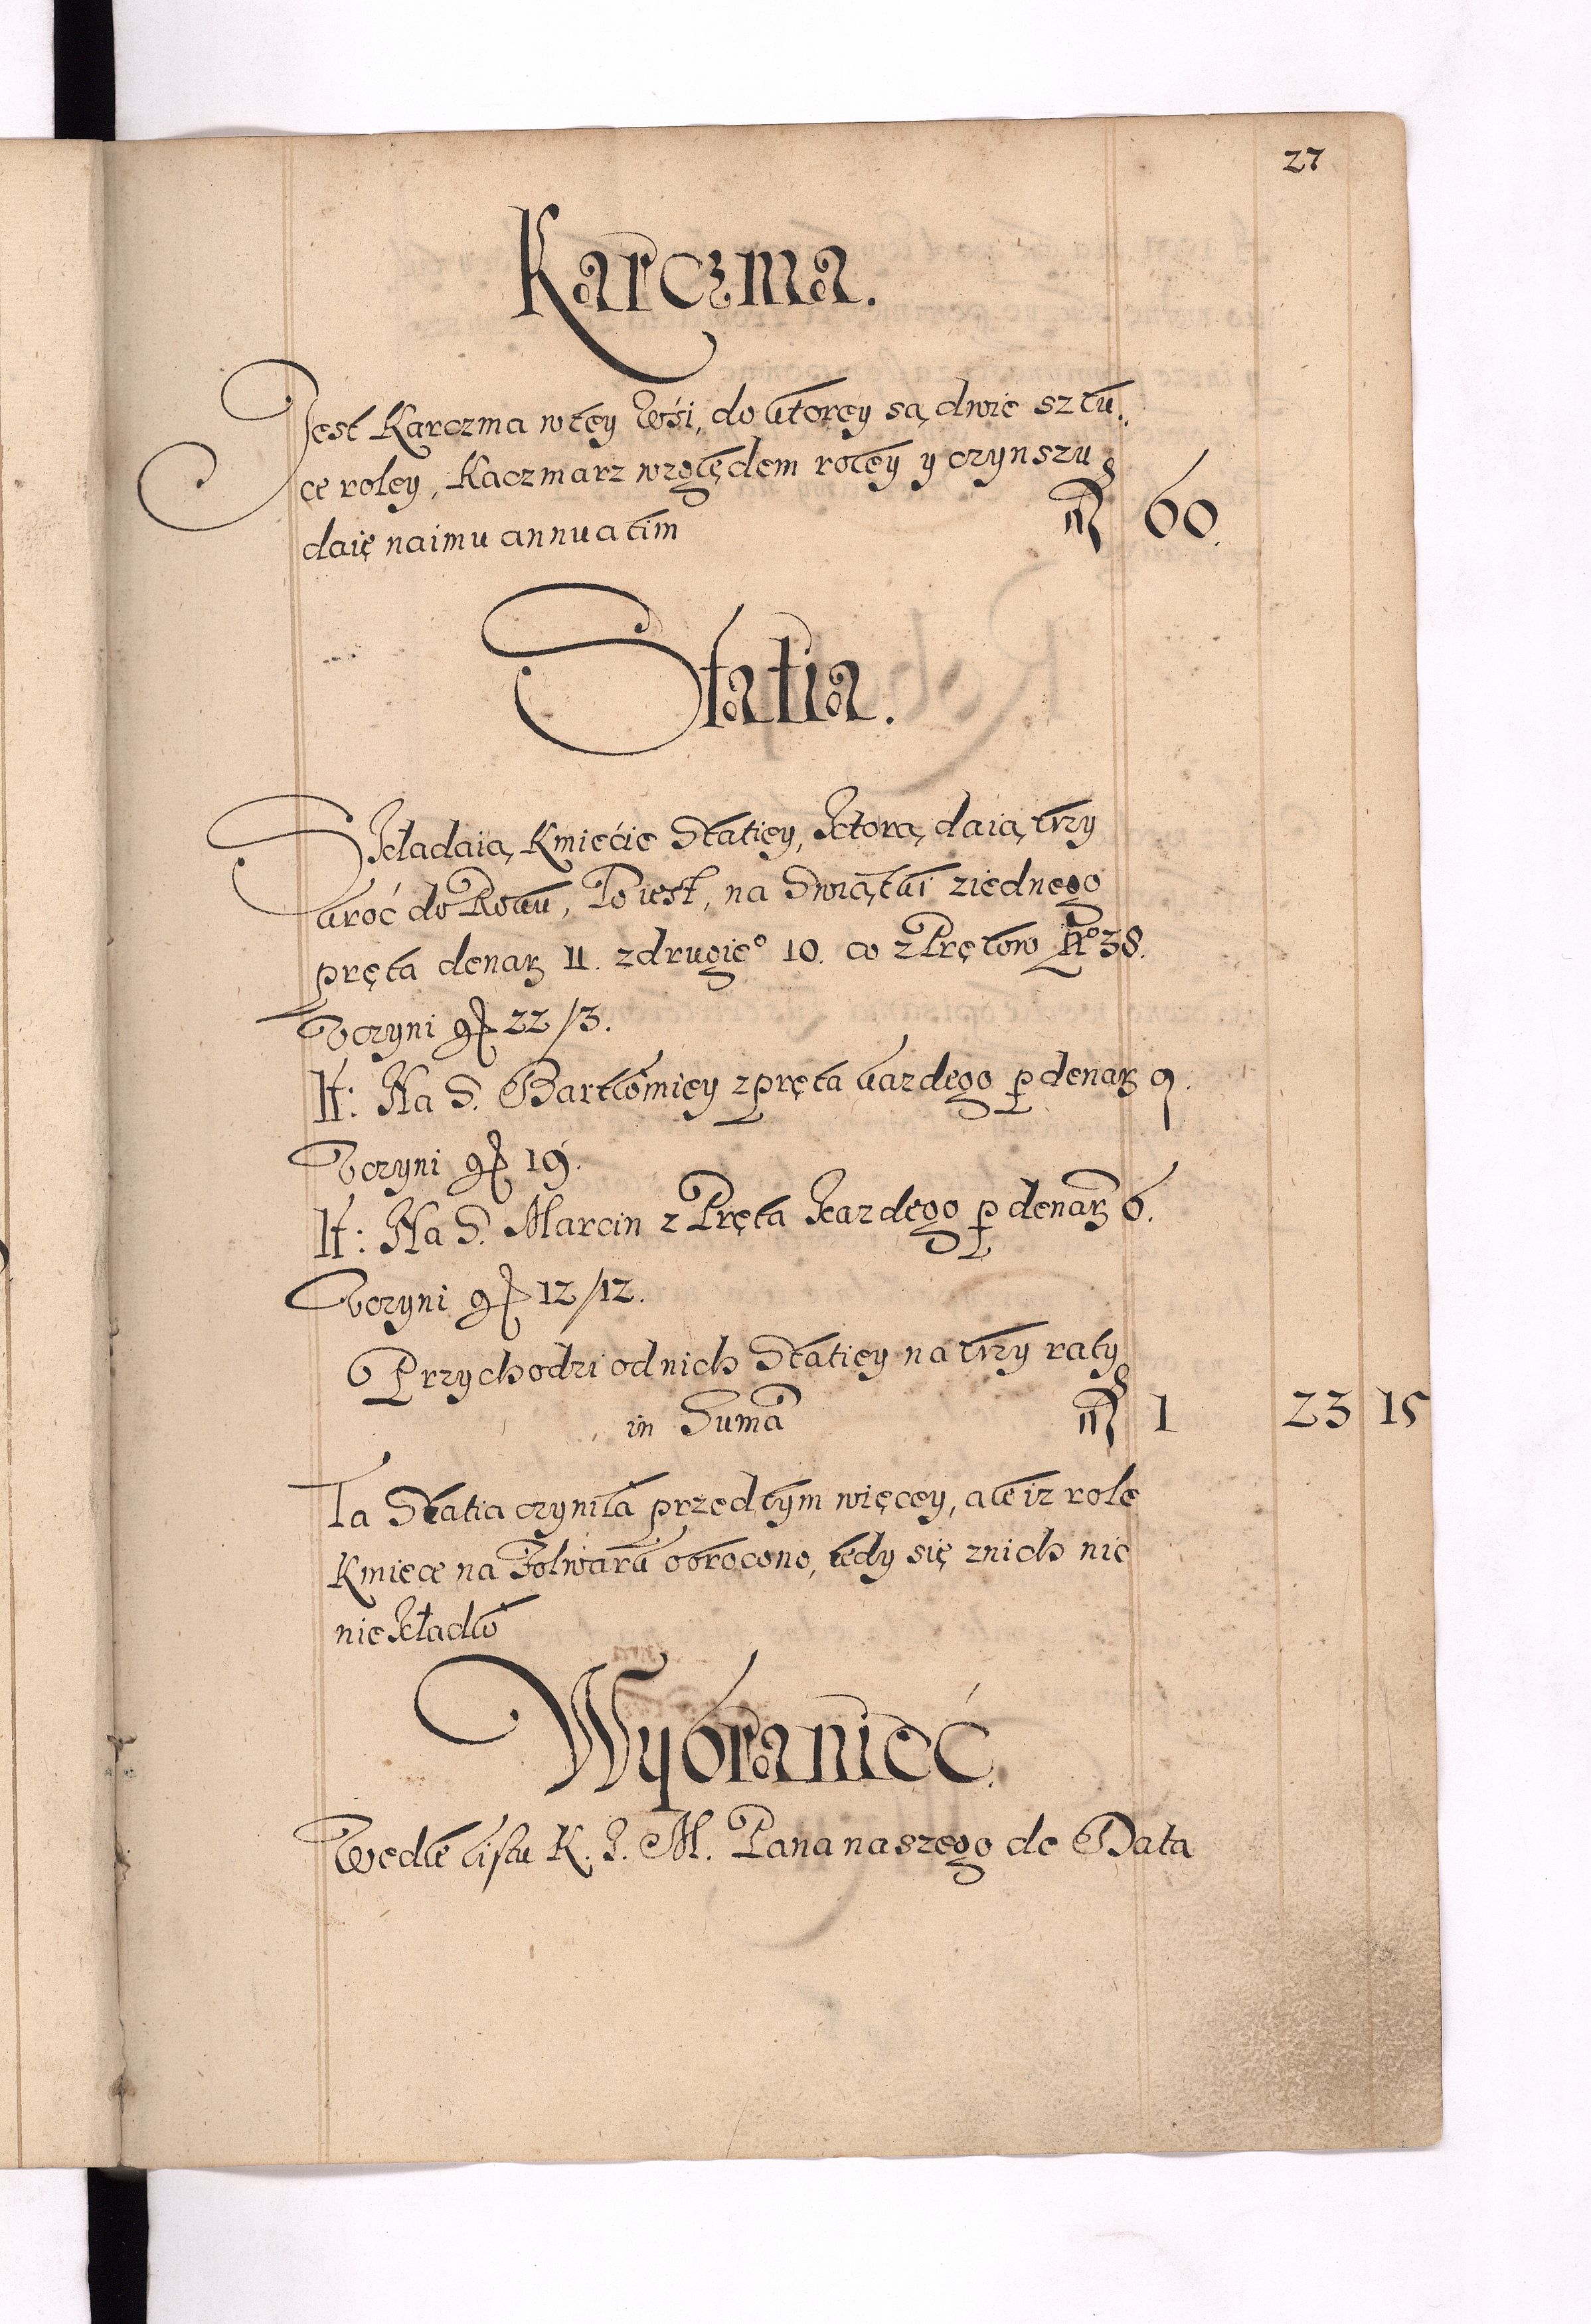 27
Karczma.
Jest Karczma w tey Wśi, do ktorey są dwie sztu,
ce roley, Kaczmarz względem roley y czynszu
daie naimu annuatim 60.
Statia.
Składaią Kmiećie Statiey, ktorą daią trzy
kroć do Roku, To iest, na Swiątki ziednego
pręta denar 11. zdrugie° 10. co z Prętow N° 38.
Vczyni gr 22/3.
It: Na S. Bartłomiey zpręta kazdego p denar 9.
Vczyni gr 19.
It: Na S. Marcin z Pręta kazdego p denar 6.
Vczyni gr 12/12.
Przychodzi odnich Statiey na trzy raty
in Suma 1 23 15
Ta Statia czyniła przedtym więcey, ale iz role
Kmiece na Folwark obrocono, tedy się znich nic
nieskłada
Wybraniec.
Wedle listu K. J. M. Pana naszego de Data